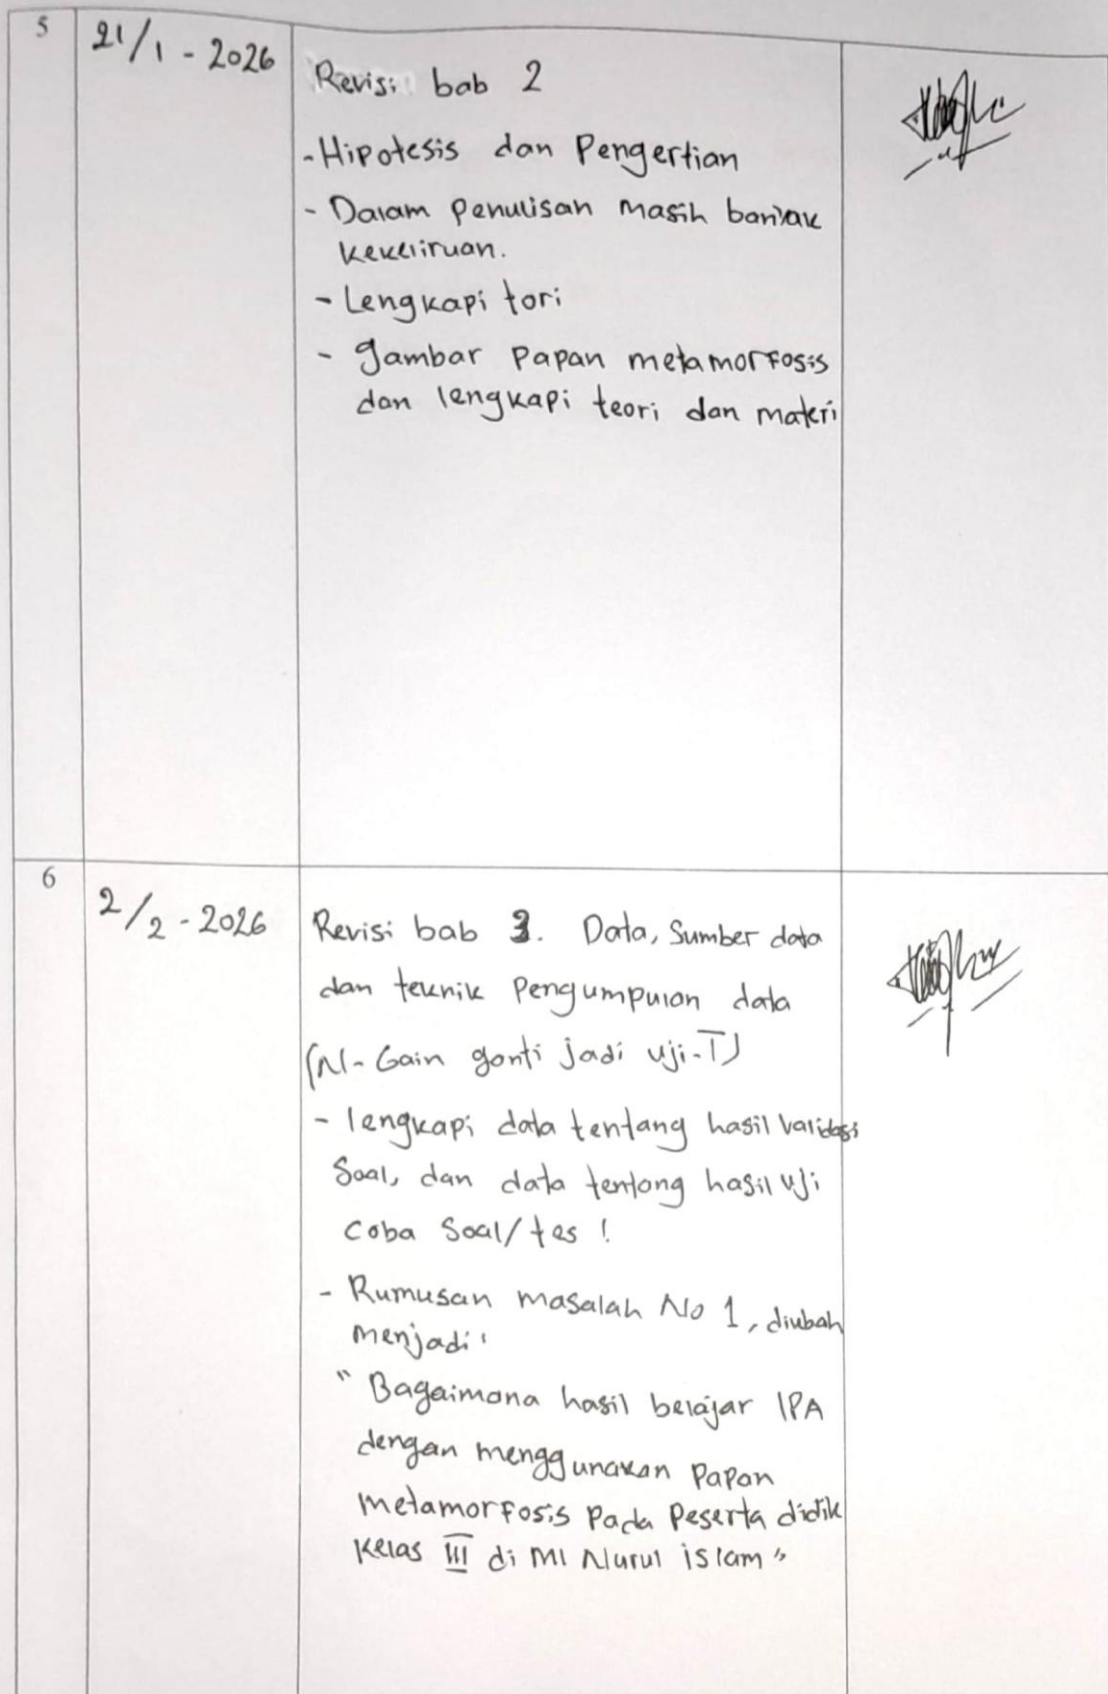 5
21/1 - 2026
Revisi bab 2
- Hipotesis dan Pengertian
- Dalam penulisan masih banyak
kekeliruan.
- Lengkapi tori
- gambar papan metamorfosis
dan lengkapi teori dan materi
6
2/2 - 2026
Revisi bab 3. Data, Sumber data
dan teknik Pengumpulan data
(N-Gain ganti jadi uji-T)
- lengkapi data tentang hasil validasi
Soal, dan data tentang hasil uji
coba Soal/tes !
- Rumusan masalah No 1, diubah
menjadi :
" Bagaimana hasil belajar IPA
dengan menggunakan Papan
metamorfosis Pada Peserta didik
Kelas III di MI Nurul islam "